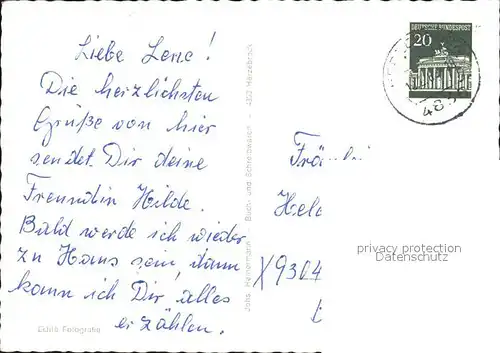 Liebe Lene!
Die herzlichsten
Grüße von hier
sendet Dir deine
Freundin Hilde.
Bald werde ich wieder
zu Haus sein, dann
kann ich Dir alles
erzählen.
Edith Fotografie
Buch- und Schreibwaren - 4832 Herzebrock
DEUTSCHE BUNDESPOST
20
privacy protection
Datenschutz
X9304